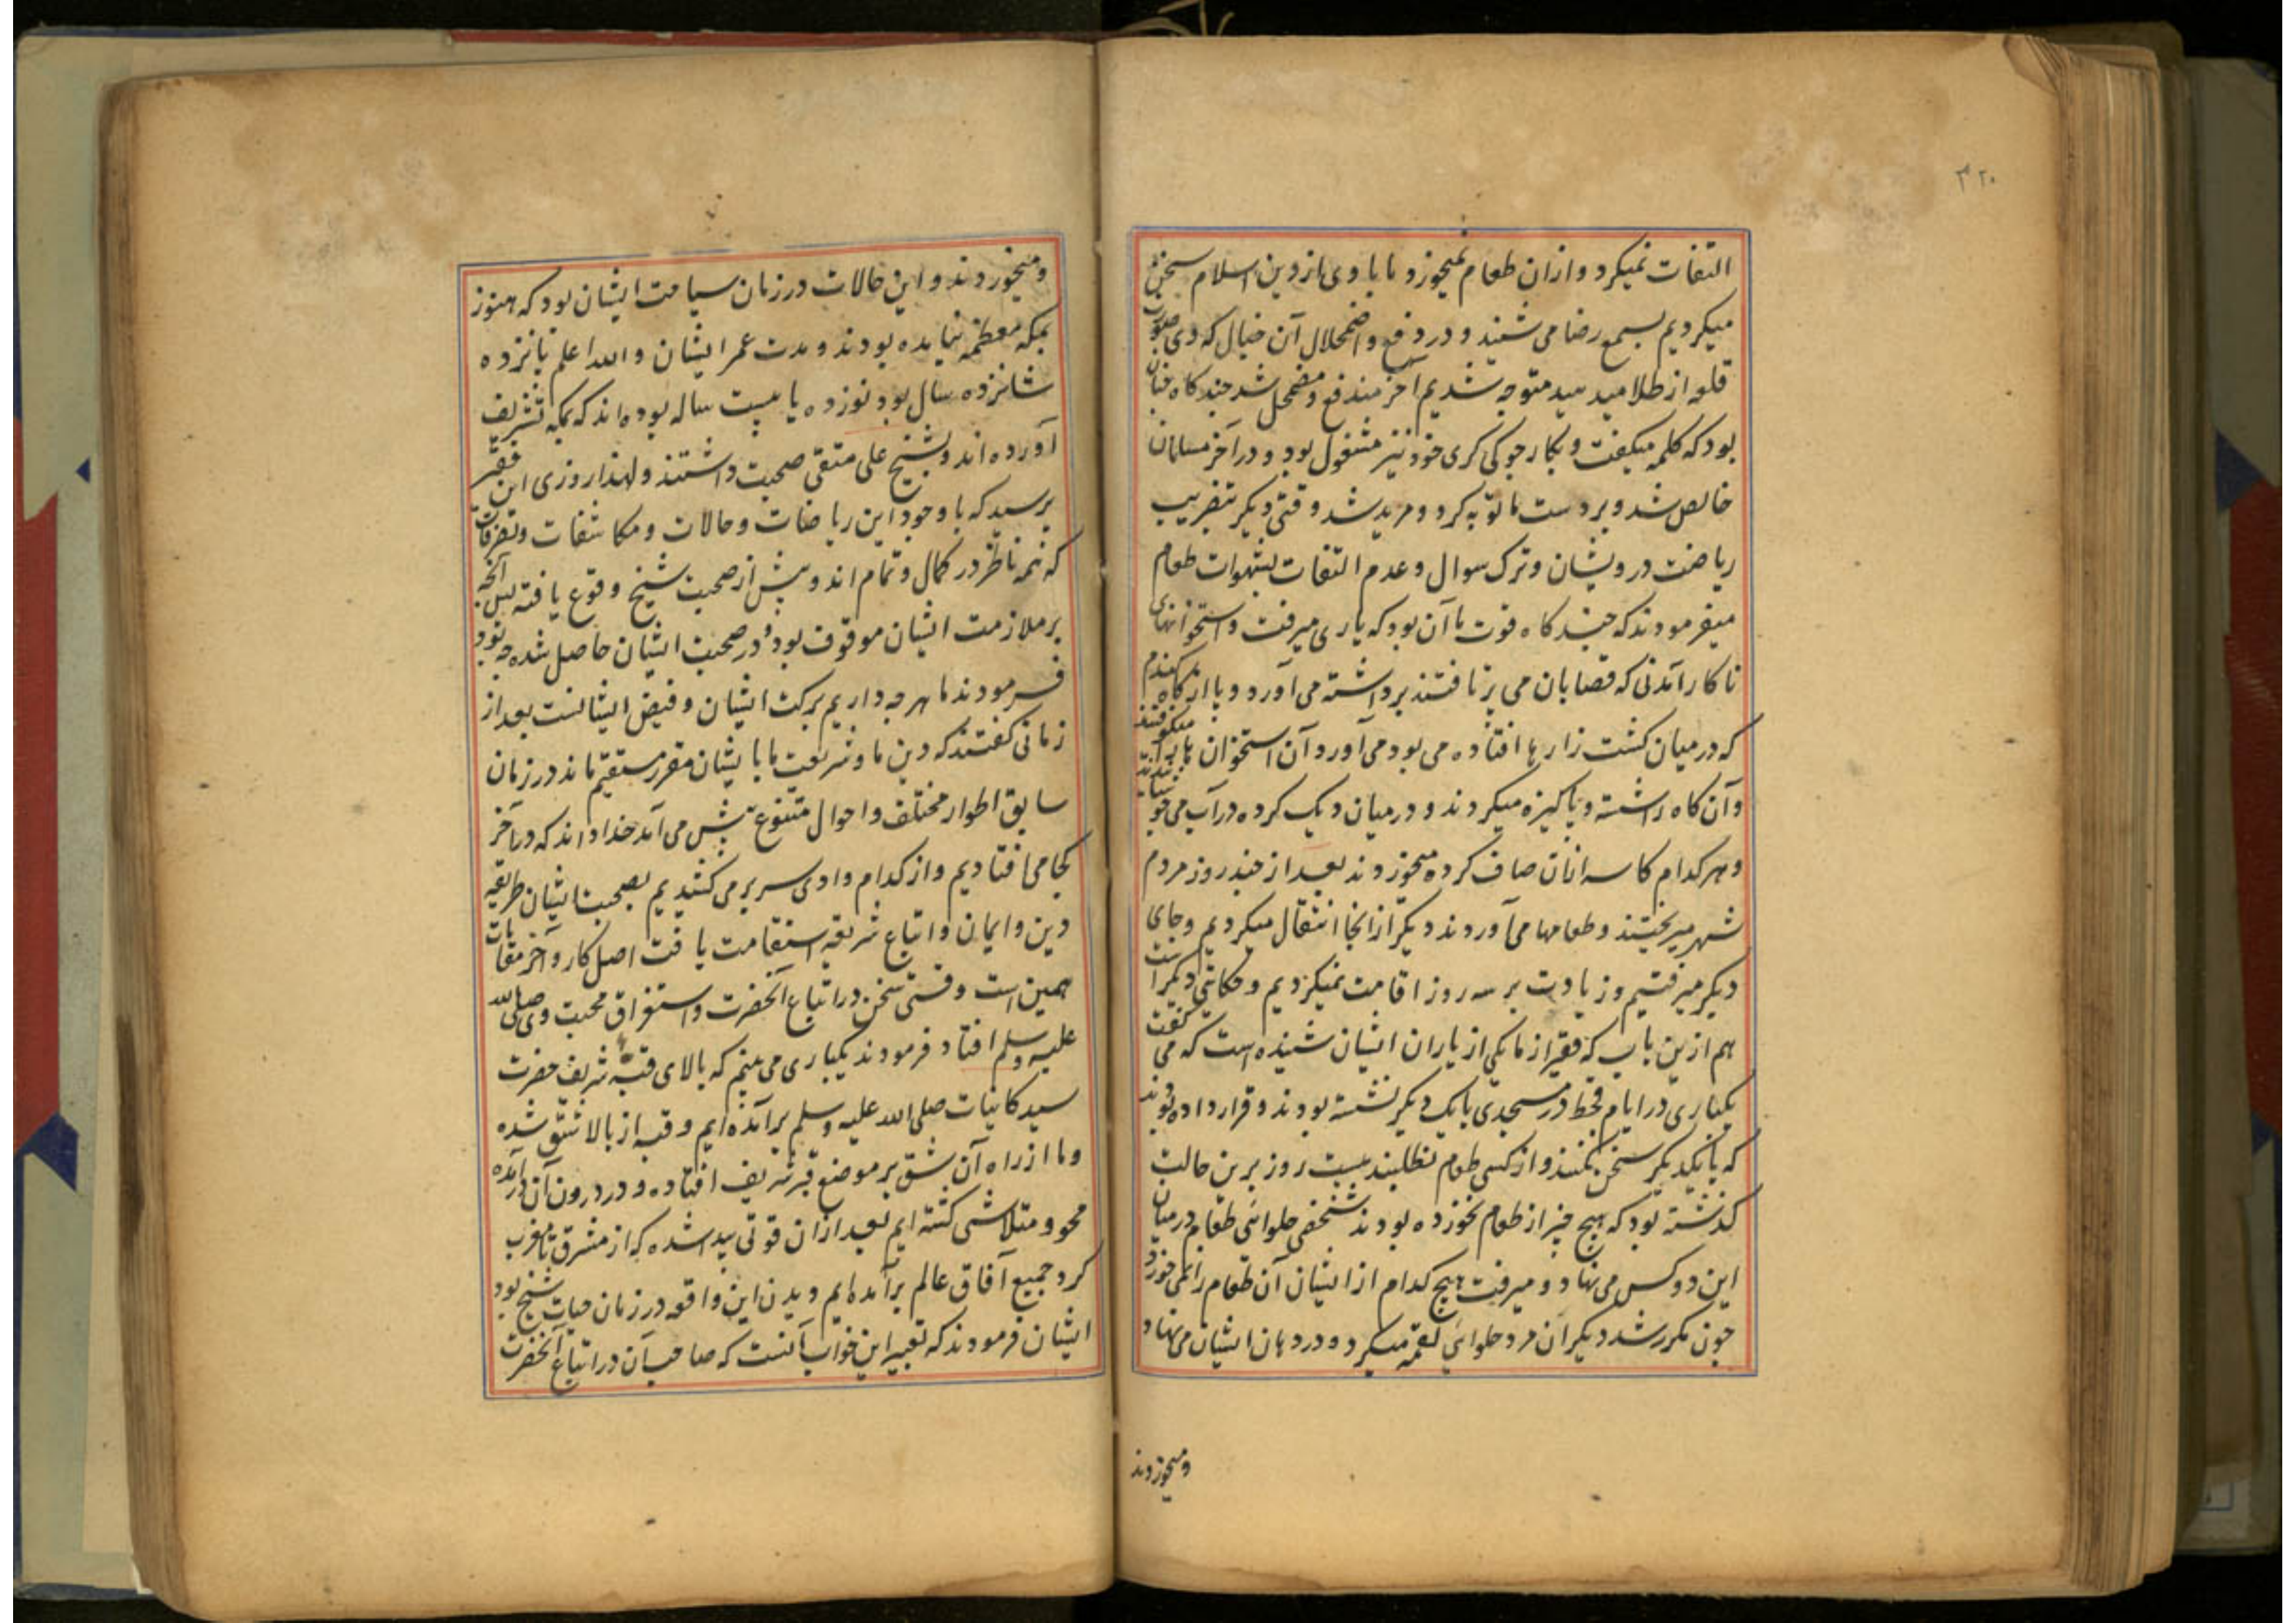 ۳۲۰
التفات نمیکرد و ازان طعام نمیخورد و ما با وی از دین اسلام سخن
میکردیم بسمع رضا می شنید و در دفع و اضمحلال آن خیال که دی بصورت
قلعه از طلا میدید متوجه شدیم آخر مندفع و مضمحل شد چند کاه چنان
بود که کلمه میگفت و بکار جوکی کری خود نیز مشغول بود و در آخر مسلمان
خالص شد و بر دست ما توبه کرد و مرید شد و قتی دیکر بتقریب
ریاضت درویشان و ترک سوال و عدم التفات بشهوات طعام
میفرمودند که چند کاه قوت ما آن بود که یاری میرفت و استخوانهای
ناکار آمدنی که قصابان می برتافتند برداشته می آورد و یا از کاه کندم
که در میان کشت زارها افتاده می بود می آورد و آن استخوان ها را میکوفتند
و آن کاه را شسته و پاکیزه میکردند و در میان دیک کرده در آب می جوشانیدند
و هر کدام کاسه ازان صاف کرده میخوردند بعد از چند روز مردم
شهر میریختند و طعامها می آوردند دیکر از انجا انتقال میکردیم و جای
دیکر میرفتیم و زیادت بر سه روز اقامت نمیکردیم و حکایتی دیکر است
هم ازین باب که فقیر از مایکی از یاران ایشان شنیده است که می گفت
یکباری در ایام قحط در مسجدی با یک دیکر نشسته بودند و قرار داده بودند
که با یکدیکر سخن نکنند و از کسی طعام نطلبند بیست روز برین حالت
کذشته بود که هیچ چیز از طعام نخورده بودند شخصی حلوائی طعام در میان
این دو کس می نهاد و میرفت هیچ کدام از ایشان آن طعام را نمی خورد
چون مکرر شد دیکر آن مرد حلوائی لقمه میکرد و در دهان ایشان می نهاد
ومیخوردند
ومیخوردند و این حالات در زمان سیاحت ایشان بود که هنوز
بمکه معظمه نیامده بودند و مدت عمر ایشان والله اعلم پانزده
شانزده سال بود نوزده یا بیست ساله بوده اند که بمکه تشریف
آورده اند و بشیخ علی متقی صحبت داشتند و لهذا روزی این فقیر
پرسید که با وجود این ریاضات و حالات و مکاشفات و تصرفات
که همه ناظر در کمال و تمام اند و پیش از صحبت شیخ وقوع یافته پس آنچه
بر ملازمت ایشان موقوف بود و در صحبت ایشان حاصل شده چه بود
فرمودند ما هر چه داریم برکت ایشان و فیض ایشانست بعد از
زمانی کفتند که دین ما و شریعت ما با یشان مقرر و مستقیم ماند در زمان
سابق اطوار مختلف و احوال متنوع پیش می آمد خدا داند که در آخر
کجا می افتادیم و از کدام وادی سر بر می کشیدیم بصحبت ایشان طریقه
دین و ایمان و اتباع شریعت استقامت یافت اصل کار و آخر مقامات
همین است وقتی سخن در اتباع آنحضرت و استغراق محبت وی صلی الله
علیه وسلم افتاد فرمودند یکباری می بینم که بالای قبه شریف حضرت
سید کاینات صلی الله علیه وسلم برآمده ایم و قبه از بالا شق شده
و ما از راه آن شق بر موضع قبر شریف افتاده و در درون آن درآمده
محو و متلاشی کشته ایم بعد ازان قوتی پیدا شده که از مشرق تا مغرب
کرد جمیع آفاق عالم برآمده ایم و دیدن این واقعه در زمان حیات شیخ بود
ایشان فرمودند که تعبیر این خواب آنست که صاحب آن در اتباع آنحضرت